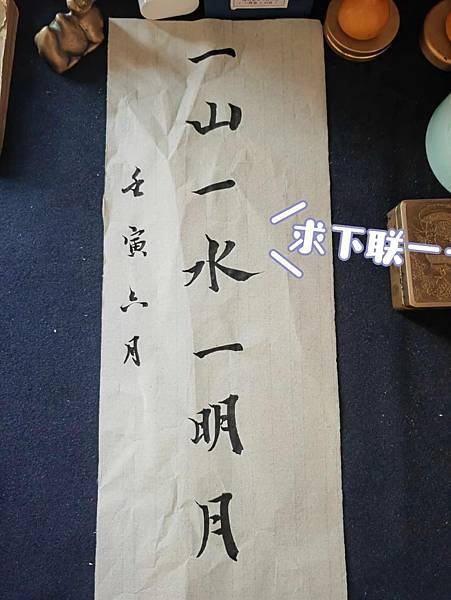 一山一水一明月
壬寅六月
求下联一